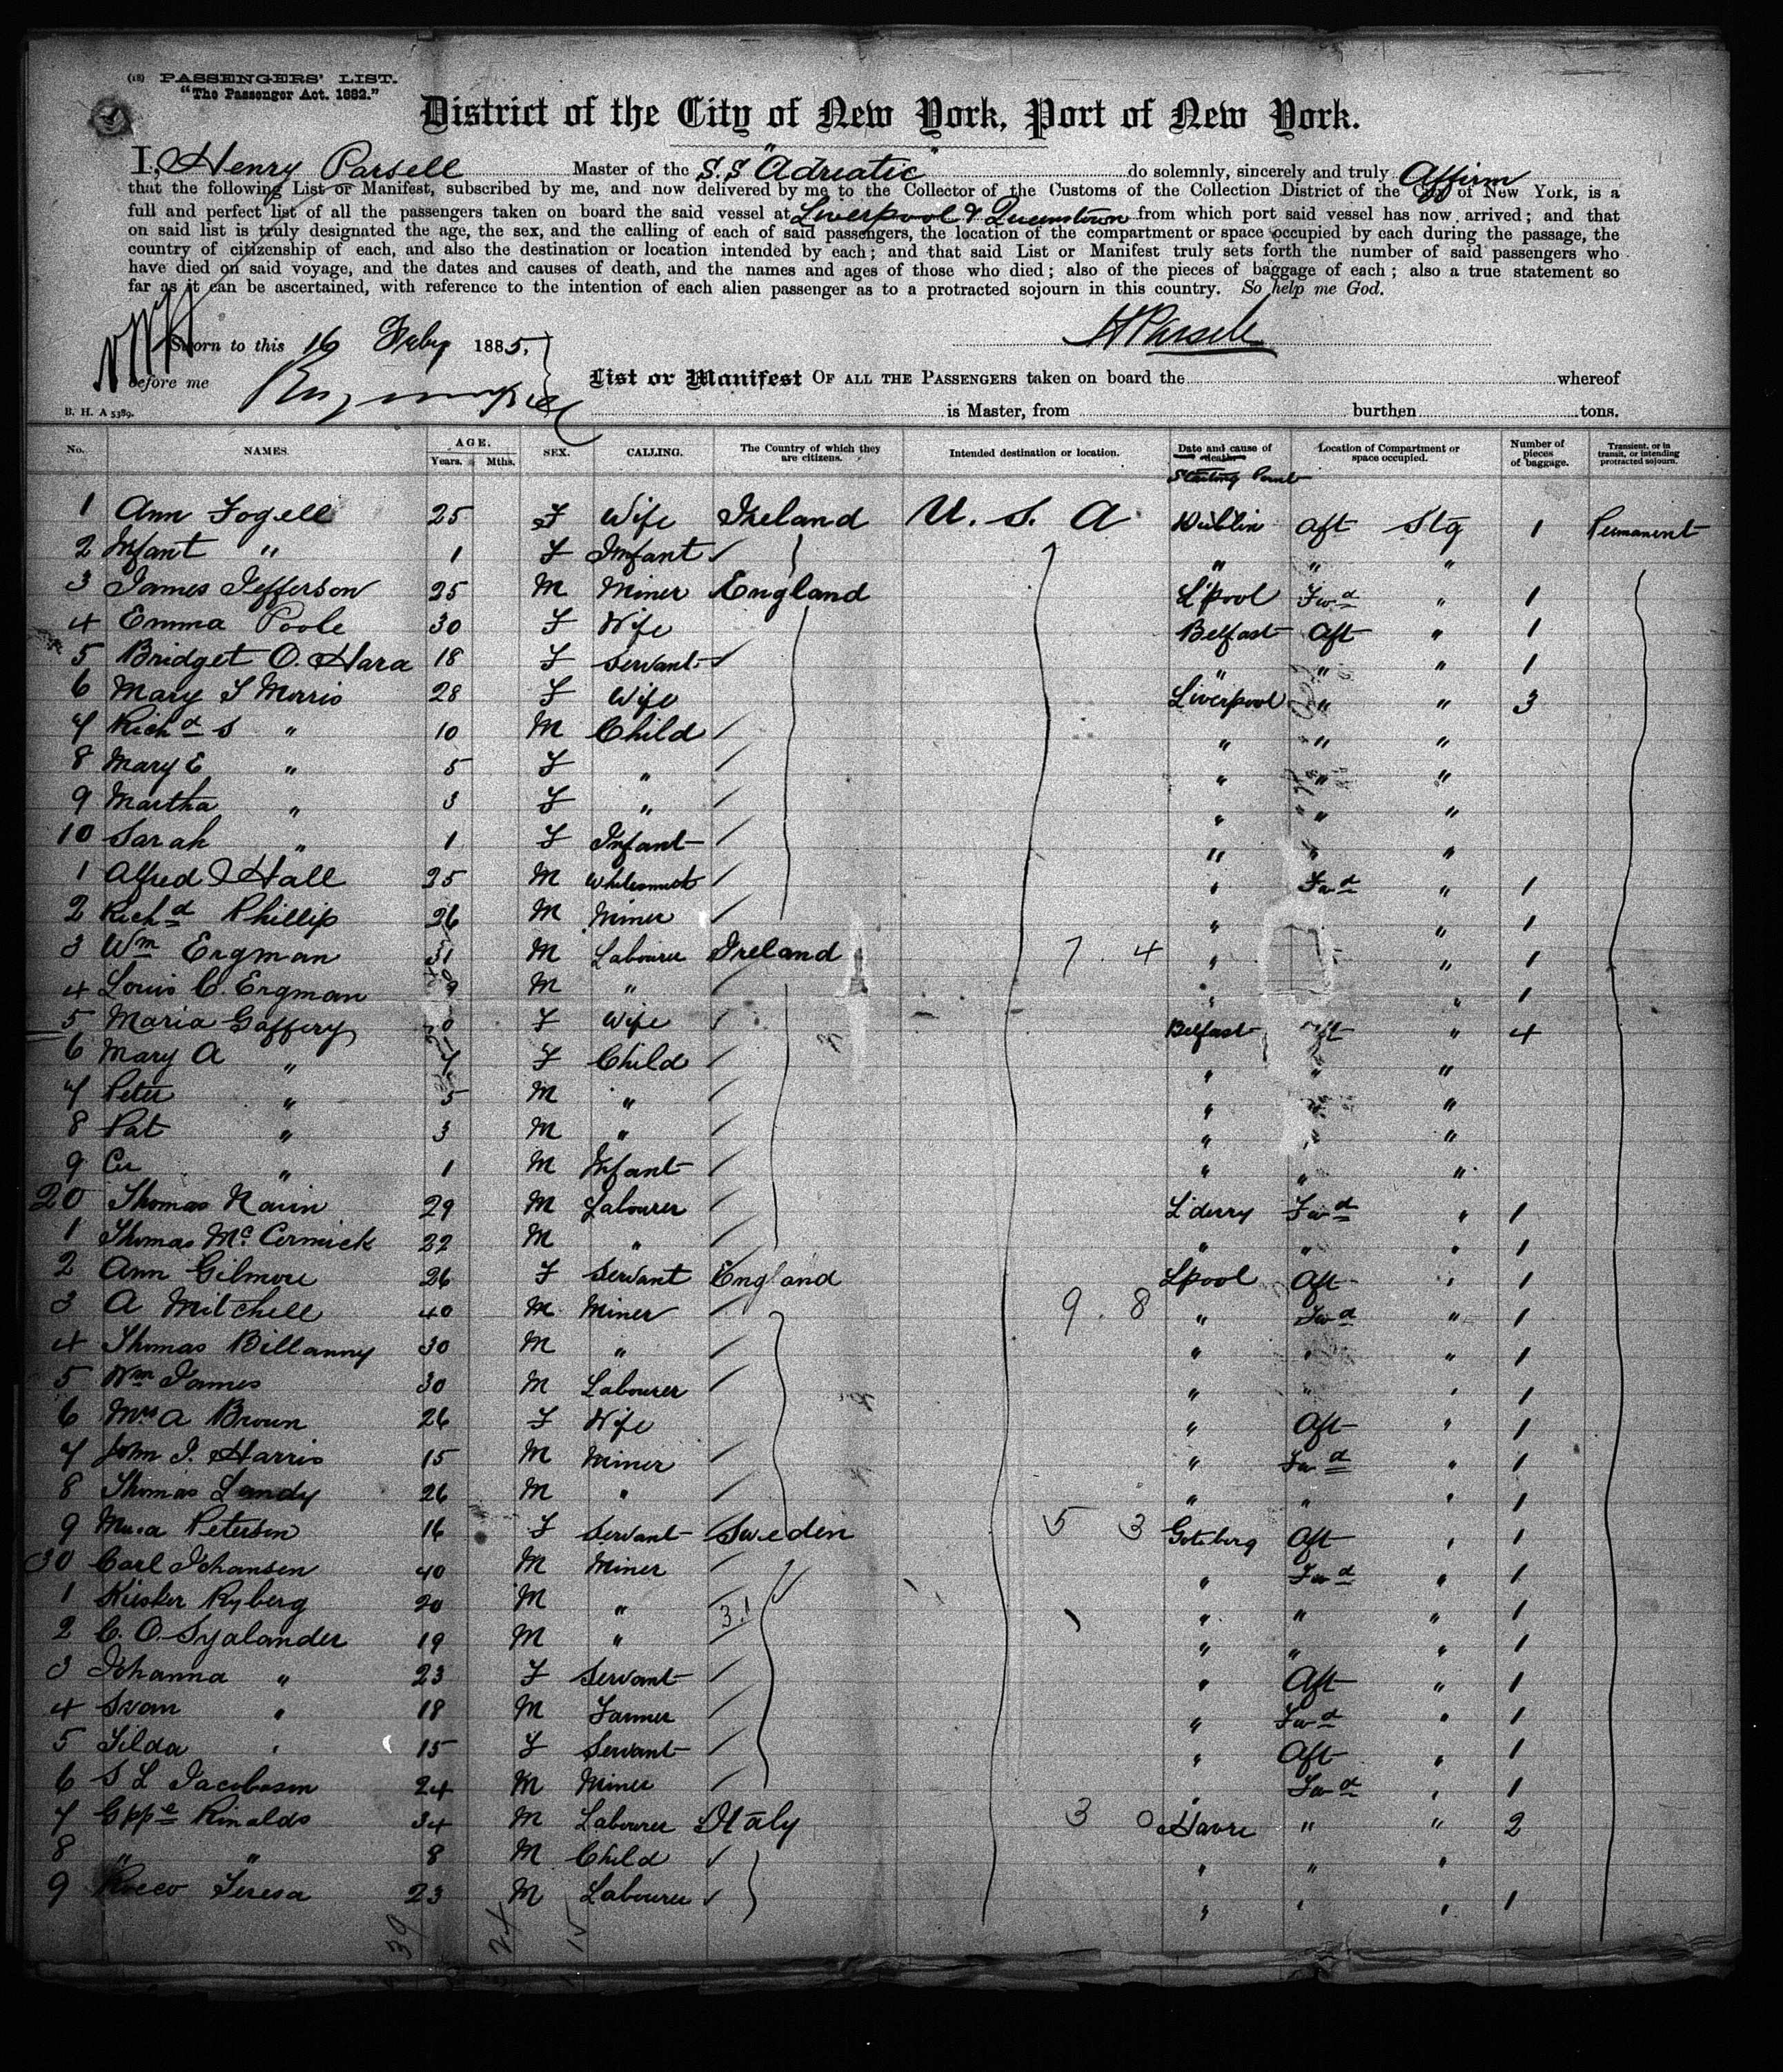 (18) PASSENGERS' LIST.
"The Passenger Act. 1882."
District of the City of New York, Port of New York.
I, Henry Parsell Master of the S.S "Adriatic" do solemnly, sincerely and truly Affirm
that the following List or Manifest, subscribed by me, and now delivered by me to the Collector of the Customs of the Collection District of the City of New York, is a
full and perfect list of all the passengers taken on board the said vessel at Liverpool & Queenstown from which port said vessel has now arrived; and that
on said list is truly designated the age, the sex, and the calling of each of said passengers, the location of the compartment or space occupied by each during the passage, the
country of citizenship of each, and also the destination or location intended by each; and that said List or Manifest truly sets forth the number of said passengers who
have died on said voyage, and the dates and causes of death, and the names and ages of those who died; also of the pieces of baggage of each; also a true statement so
far as it can be ascertained, with reference to the intention of each alien passenger as to a protracted sojourn in this country. So help me God.
Sworn to this 16 Feby 1885, HParsell
before me List or Manifest OF ALL THE PASSENGERS taken on board the whereof
B. H. A 5389. is Master, from burthen tons.
No. NAMES. AGE. Years. Mths. SEX. CALLING. The Country of which they are citizens. Intended destination or location. Date and cause of death. Location of Compartment or space occupied. Number of pieces of baggage. Transient, or in transit, or intending protracted sojourn.
Starting Point
1 Ann Fogell 25 F Wife Ireland U. S. A Dublin Aft Stg 1 Permanent
2 Infant " 1 F Infant " " "
3 James Jefferson 25 M Miner England L'pool Fwd " 1
4 Emma Poole 30 F Wife Belfast Aft " 1
5 Bridget O. Hara 18 F Servant " " " 1
6 Mary F Morris 28 F Wife Liverpool " " 3
7 Richd S " 10 M Child " " "
8 Mary E " 5 F " " " "
9 Martha " 3 F " " " "
10 Sarah " 1 F Infant " " "
1 Alfred Hall 25 M Whitesmith " Fwd " 1
2 Richd Phillip 26 M Miner " " 1
3 Wm Ergman 31 M Labourer Ireland 7. 4 " " 1
4 Louis C. Ergman 9 M " " " 1
5 Maria Gaffery F Wife Belfast Aft " 4
6 Mary A " 7 F Child " " "
7 Peter " 5 M " " " "
8 Pat " 3 M " " " "
9 " 1 M Infant " " "
20 Thomas Navin 29 M Labourer L'derry Fwd " 1
1 Thomas McCormick 22 M " " " " 1
2 Ann Gilmore 26 F Servant England Lpool Aft " 1
3 A Mitchell 40 M Miner 9. 8 " Fwd " 1
4 Thomas Billanny 30 M " " " " 1
5 Wm James 30 M Labourer " " " 1
6 Mrs A Brown 26 F Wife " Aft " 1
7 John J. Harris 15 M Miner " Fwd " 1
8 Thomas Landy 26 M " " " " 1
9 Petersen 16 F Servant Sweden 5 3 Goteberg Aft " 1
30 Carl Johansen 40 M Miner " Fwd " 1
1 Ryberg 20 M " 31 " " " 1
2 C. O. Syalander 19 M " " " " 1
3 Johanna " 23 F Servant " Aft " 1
4 Svan " 18 M Farmer " Fwd " 1
5 Tilda " 15 F Servant " Aft " 1
6 S L Jacobson 24 M Miner " Fwd " 1
7 Gppe Rinaldo 34 M Labourer Italy 3 0 Havre " " 2
8 " " 8 M Child " " "
9 Rocco Teresa 23 M Labourer " " " 1
39 24 15